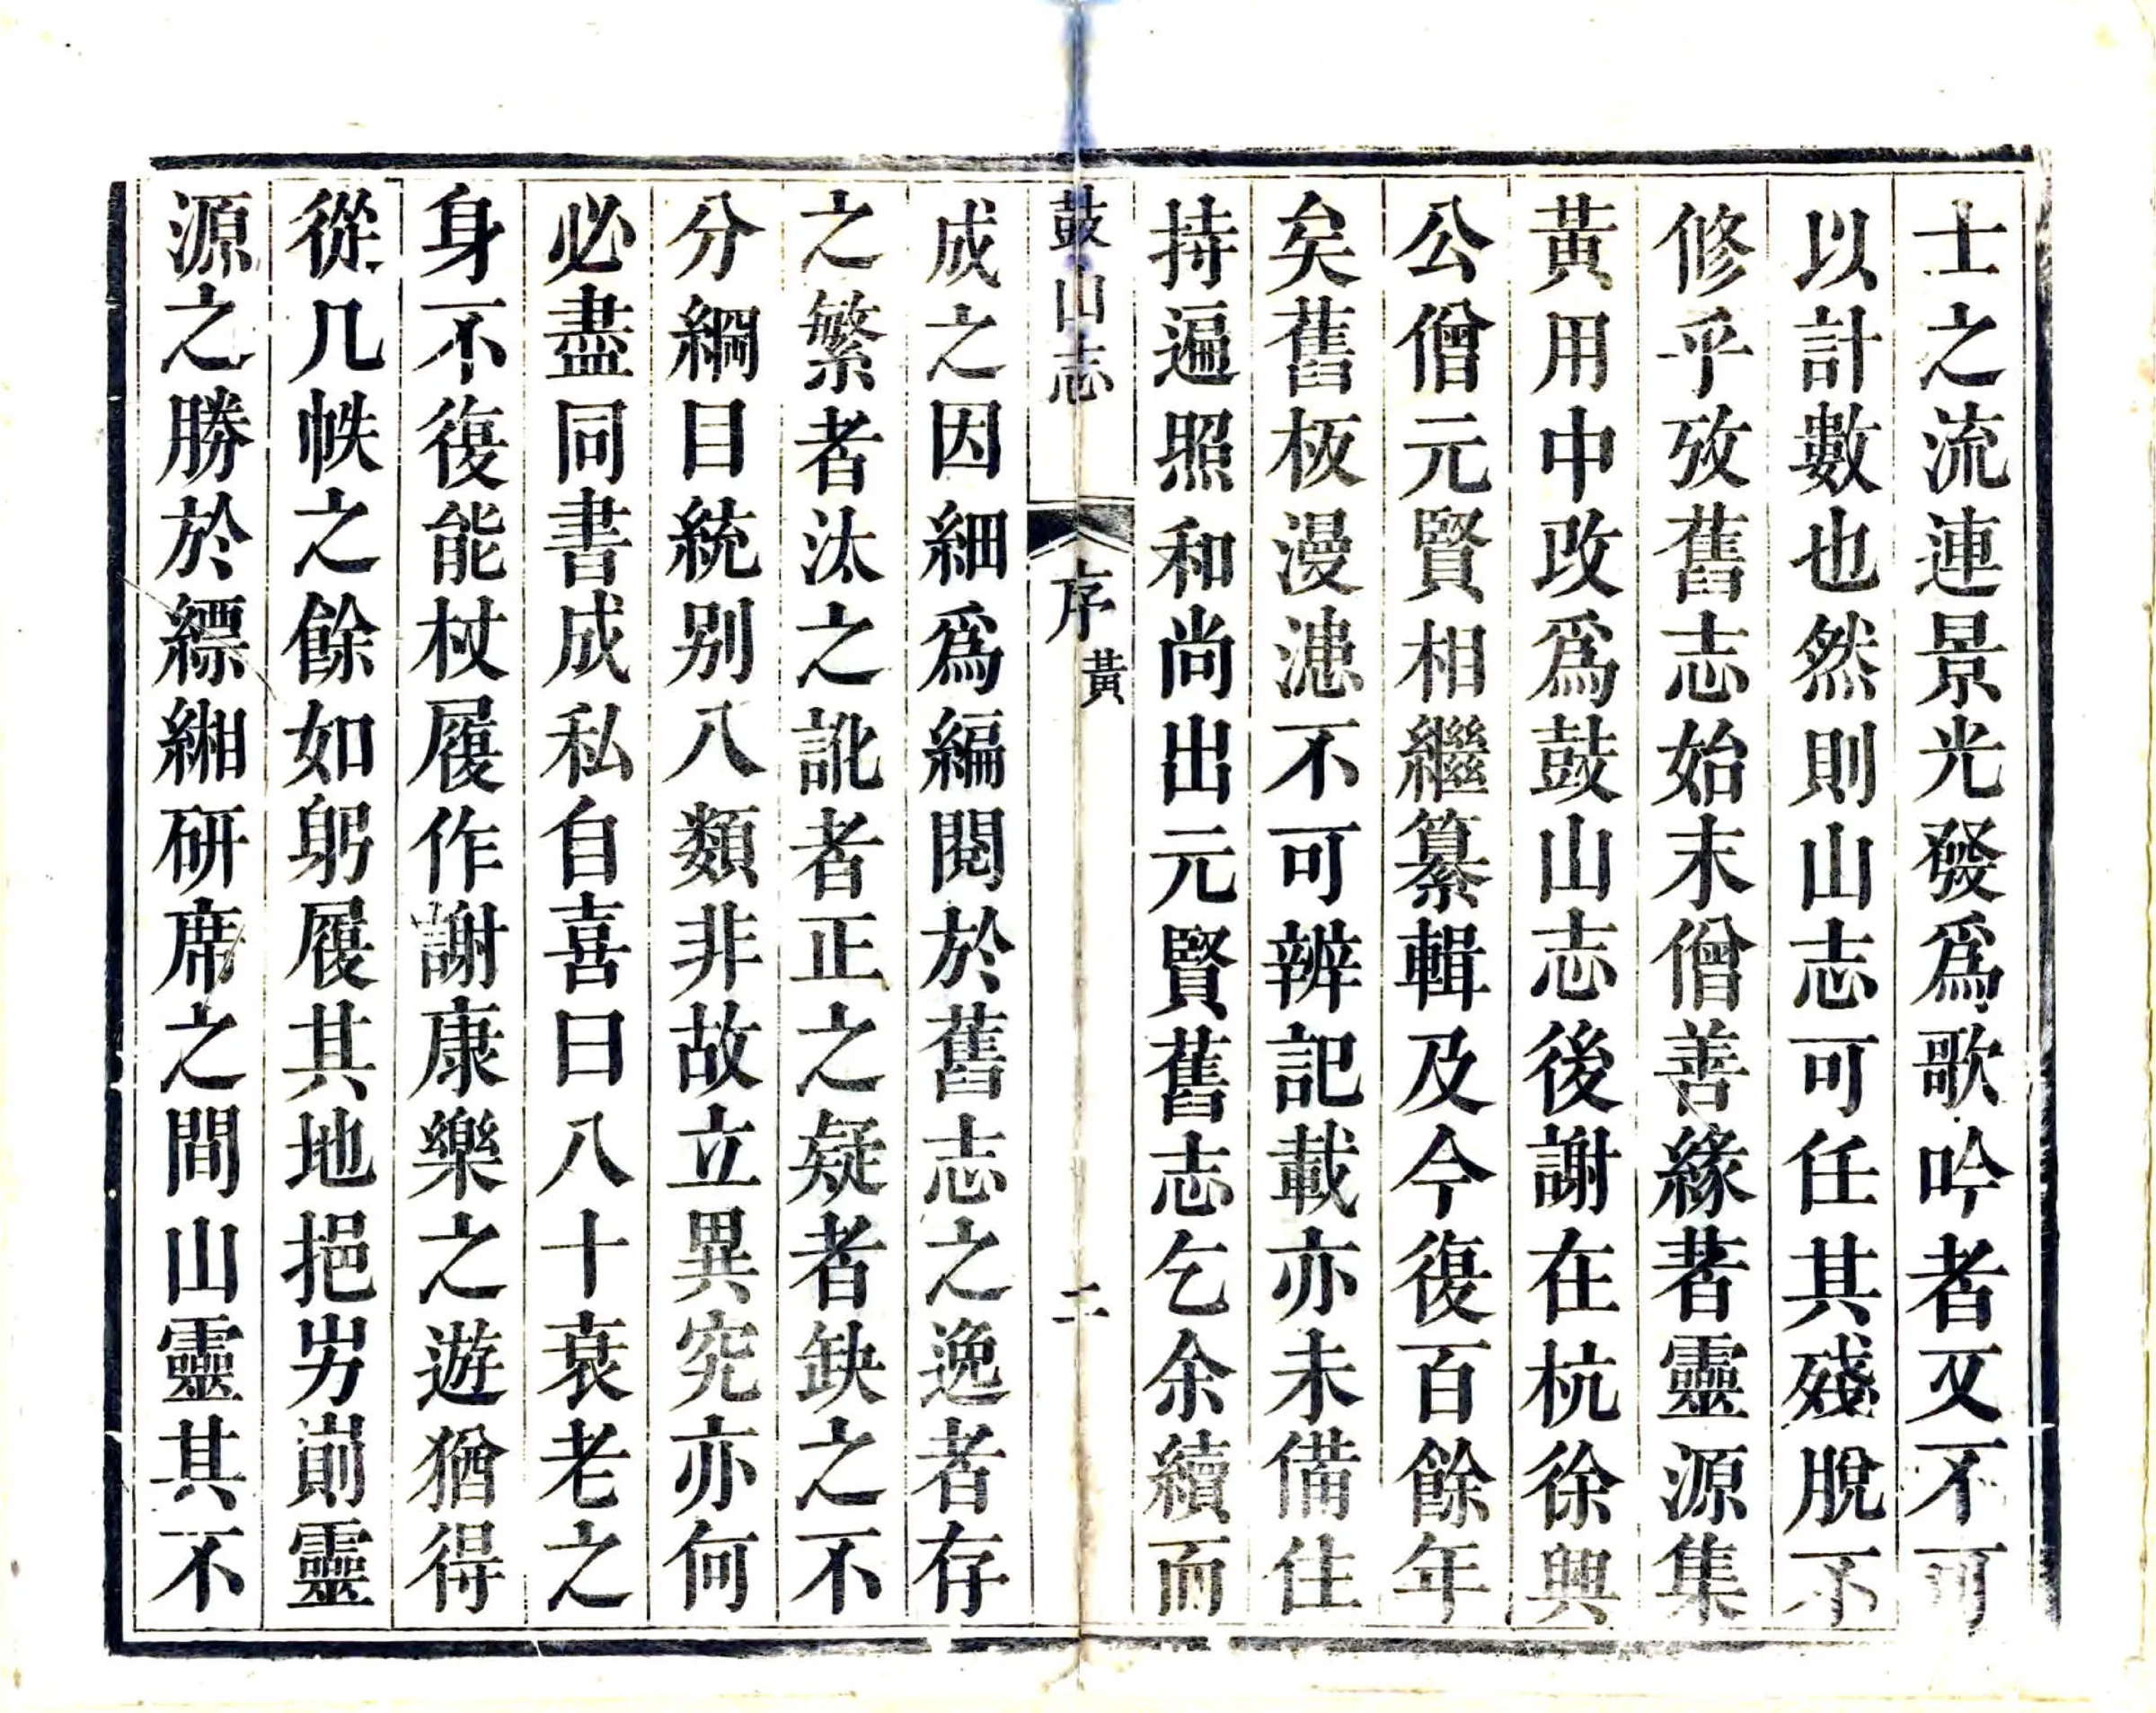 士之流連景光發爲歌吟者又不可
以計數也然則山志可任其殘脫不
修乎攷舊志始末僧善緣著靈源集
黃用中改爲鼓山志後謝在杭徐興
公僧元賢相繼纂輯及今復百餘年
矣舊板漫漶不可辨記載亦未備住
持遍照和尚出元賢舊志乞余續而
鼓山志
序黃
二
成之因細爲編閱於舊志之逸者存
之繁者汰之訛者正之疑者缺之不
分綱目統別八類非故立異究亦何
必盡同書成私自喜曰八十衰老之
身不復能杖履作謝康樂之遊猶得
從几帙之餘如躬履其地挹屴崱靈
源之勝於縹緗研席之間山靈其不